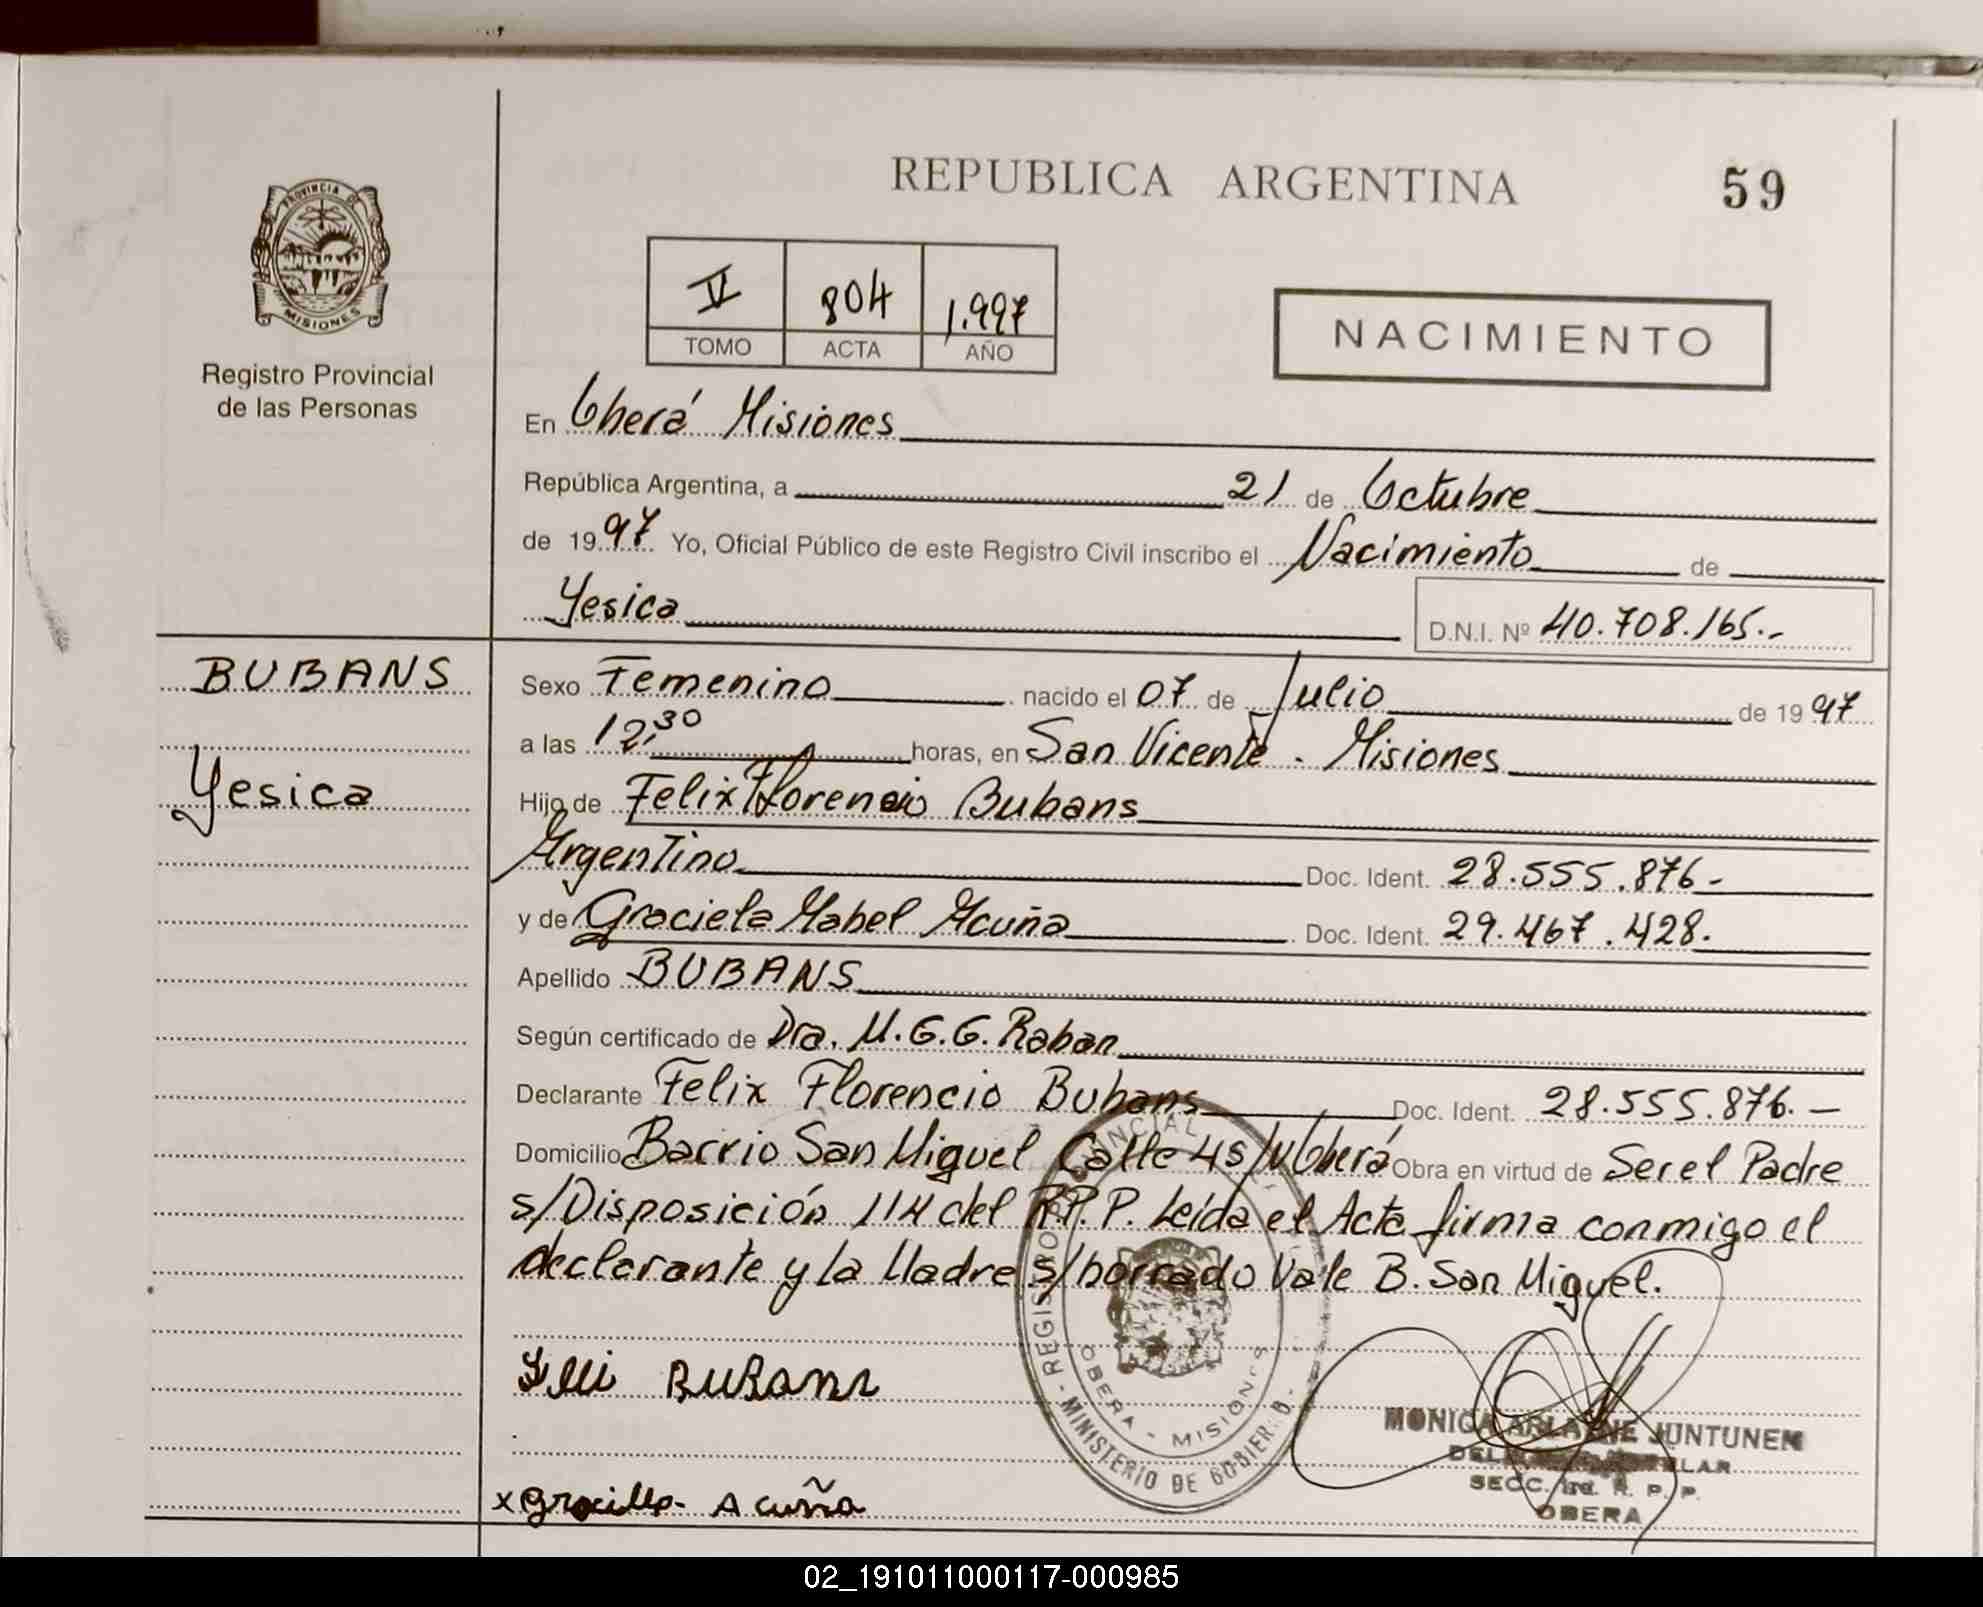 PROVINCIA DE
MISIONES
Registro Provincial
de las Personas
REPUBLICA ARGENTINA
59
V 804 1.997
TOMO ACTA AÑO
NACIMIENTO
En Oberá Misiones
República Argentina, a 21 de Octubre
de 1997 Yo, Oficial Público de este Registro Civil inscribo el Nacimiento de
Yesica D.N.I. Nº 40.708.165.-
BUBANS
Yesica
Sexo Femenino nacido el 07 de Julio de 1997
a las 12,30 horas, en San Vicente - Misiones
Hijo de Felix Florencio Bubans
Argentino Doc. Ident. 28.555.876-
y de Graciela Mabel Acuña Doc. Ident. 29.467.428.
Apellido BUBANS
Según certificado de Dra. M.G.G. Raban
Declarante Felix Florencio Bubans Doc. Ident. 28.555.876.-
Domicilio Barrio San Miguel Calle 4 s/N Oberá Obra en virtud de Ser el Padre
s/Disposición 114 del R.P.P. Leída el Acta firma conmigo el
declarante y la Madre s/borrado Vale B. San Miguel.
BUBANS
x Graciela Acuña
REGISTRO PROVINCIAL
OBERA - MISIONES
- MINISTERIO DE GOBIERNO -
MONICA ARLAINE JUNTUNEN
SECC. R. P. P.
OBERA
02_191011000117-000985